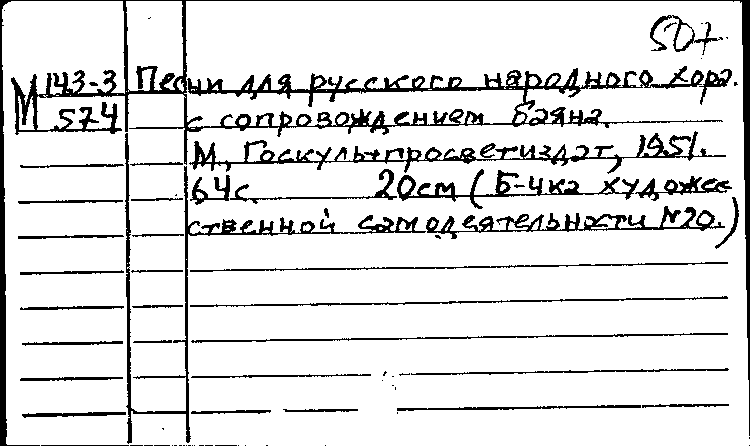 507
М 143-3 Песни для русского народного хора.
574 с сопровождением баяна.
М., Госкультпросветиздат, 1951.
64с. 20см (Б-чка художес
ственной самодеятельности №20.)